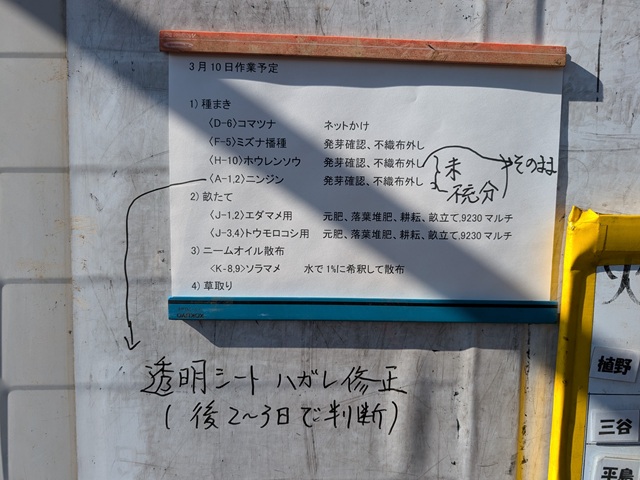 3月10日作業予定
1) 種まき
〈D-6〉コマツナ ネットかけ
〈F-5〉ミズナ播種 発芽確認、不織布外し
〈H-10〉ホウレンソウ 発芽確認、不織布外し
〈A-1,2〉ニンジン 発芽確認、不織布外し
未
不充分
そのまま
2) 畝たて
〈J-1,2〉エダマメ用 元肥、落葉堆肥、耕耘、畝立て,9230マルチ
〈J-3,4〉トウモロコシ用 元肥、落葉堆肥、耕耘、畝立て,9230マルチ
3) ニームオイル散布
〈K-8,9〉ソラマメ 水で1%に希釈して散布
4) 草取り
透明シート ハガレ修正
(後2~3日で判断)
火
植野
三谷
平島